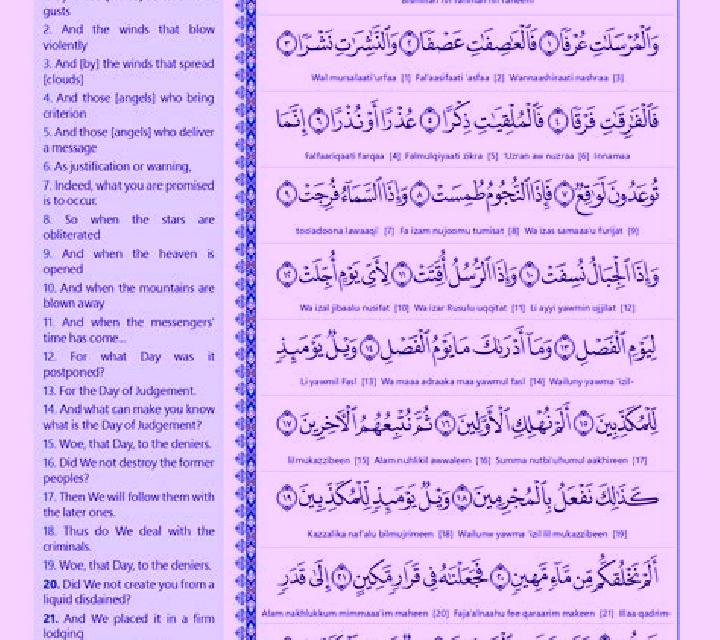 gusts
2. And the winds that blow
violently
3. And [by] the winds that spread
[clouds]
4. And those [angels] who bring
criterion
5. And those [angels] who deliver
a message
6. As justification or warning,
7. Indeed, what you are promised
is to occur.
8. So when the stars are
obliterated
9. And when the heaven is
opened
10. And when the mountains are
blown away
11. And when the messengers'
time has come...
12. For what Day was it
postponed?
13. For the Day of Judgement.
14. And what can make you know
what is the Day of Judgement?
15. Woe, that Day, to the deniers.
16. Did We not destroy the former
peoples?
17. Then We will follow them with
the later ones.
18. Thus do We deal with the
criminals.
19. Woe, that Day, to the deniers.
20. Did We not create you from a
liquid disdained?
21. And We placed it in a firm
lodging
وَالْمُرْسَلَٰتِ عُرْفًا ۝١ فَالْعَٰصِفَٰتِ عَصْفًا ۝٢ وَالنَّٰشِرَٰتِ نَشْرًا ۝٣
Wal mursalaati'urfaa [1] Fal'aasifaati 'asfaa [2] Wannaashiraati nashraa [3]
فَالْفَٰرِقَٰتِ فَرْقًا ۝٤ فَالْمُلْقِيَٰتِ ذِكْرًا ۝٥ عُذْرًا أَوْ نُذْرًا ۝٦ إِنَّمَا
Falfaariqaati farqaa [4] Falmulqiyaati zikra [5] 'Uzran aw nuzraa [6] Innamaa
تُوعَدُونَ لَوَٰقِعٌ ۝٧ فَإِذَا النُّجُومُ طُمِسَتْ ۝٨ وَإِذَا السَّمَآءُ فُرِجَتْ ۝٩
too'adoona lawaaqi' [7] Fa izam nujoomu tumisat [8] Wa izas samaaa'u furijat [9]
وَإِذَا الْجِبَالُ نُسِفَتْ ۝١٠ وَإِذَا الرُّسُلُ أُقِّتَتْ ۝١١ لِأَيِّ يَوْمٍ أُجِّلَتْ ۝١٢
Wa izal jibaalu nusifat [10] Wa izar Rusulu uqqitat [11] Li ayyi yawmin ujjilat [12]
لِيَوْمِ الْفَصْلِ ۝١٣ وَمَآ أَدْرَىٰكَ مَا يَوْمُ الْفَصْلِ ۝١٤ وَيْلٌ يَوْمَئِذٍ
Li yawmil Fasl [13] Wa maaa adraaka maa yawmul fasl [14] Wailuny yawma 'izil-
لِّلْمُكَذِّبِينَ ۝١٥ أَلَمْ نُهْلِكِ الْأَوَّلِينَ ۝١٦ ثُمَّ نُتْبِعُهُمُ الْآخِرِينَ ۝١٧
lil mukazzibeen [15] Alam nuhlikil awwaleen [16] Summa nutbi'uhumul aakhireen [17]
كَذَٰلِكَ نَفْعَلُ بِالْمُجْرِمِينَ ۝١٨ وَيْلٌ يَوْمَئِذٍ لِّلْمُكَذِّبِينَ ۝١٩
Kazzalika naf'alu bilmujrimeen [18] Wailunw yawma 'izil lil mukazzibeen [19]
أَلَمْ نَخْلُقكُّم مِّن مَّآءٍ مَّهِينٍ ۝٢٠ فَجَعَلْنَٰهُ فِي قَرَارٍ مَّكِينٍ ۝٢١ إِلَىٰ قَدَرٍ
Alam nakhlukkum mimmaaa'im maheen [20] Faja'alnaahu fee qaraarim makeen [21] Illaa qadrim-